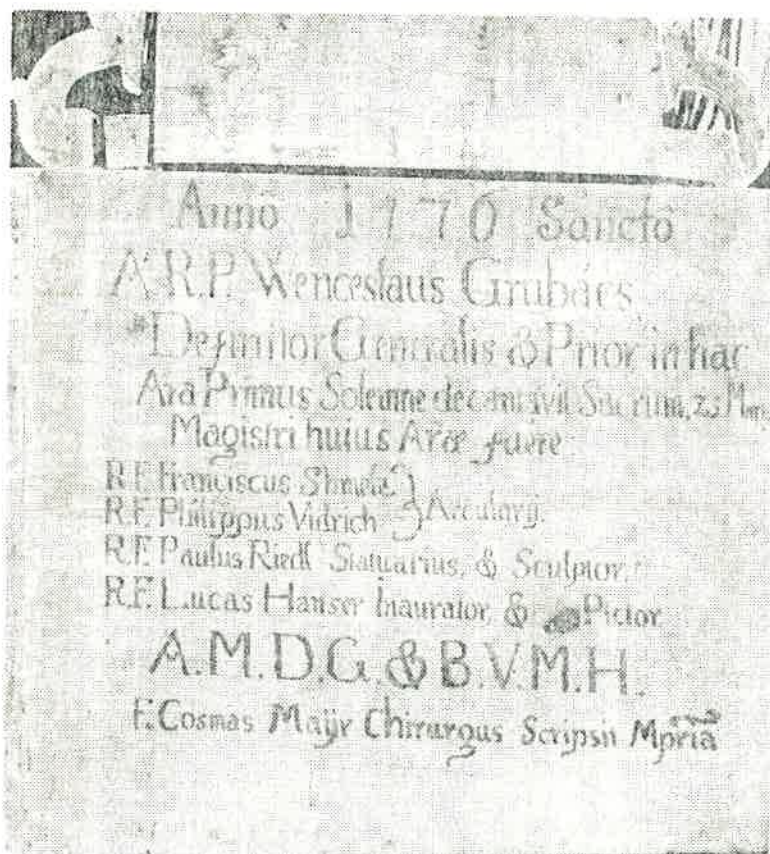 Anno 1770 Sancto
A.R.P. Wenceslaus Grubács
Definitor Generalis & Prior in hac
Ara Primus Solemne decantavit Sacrum,
Magistri huius Aræ fuere
R.F. Franciscus
R.F. Philippus Vidrich Arcularÿ.
R.F. Paulus Riedl Statuarius, & Sculptor.
R.F. Lucas Hanser Inaurator, & Pictor
A.M.D.G. & B.V.M.H.
F. Cosmas Maÿr Chirurgus Scripsit Mpria